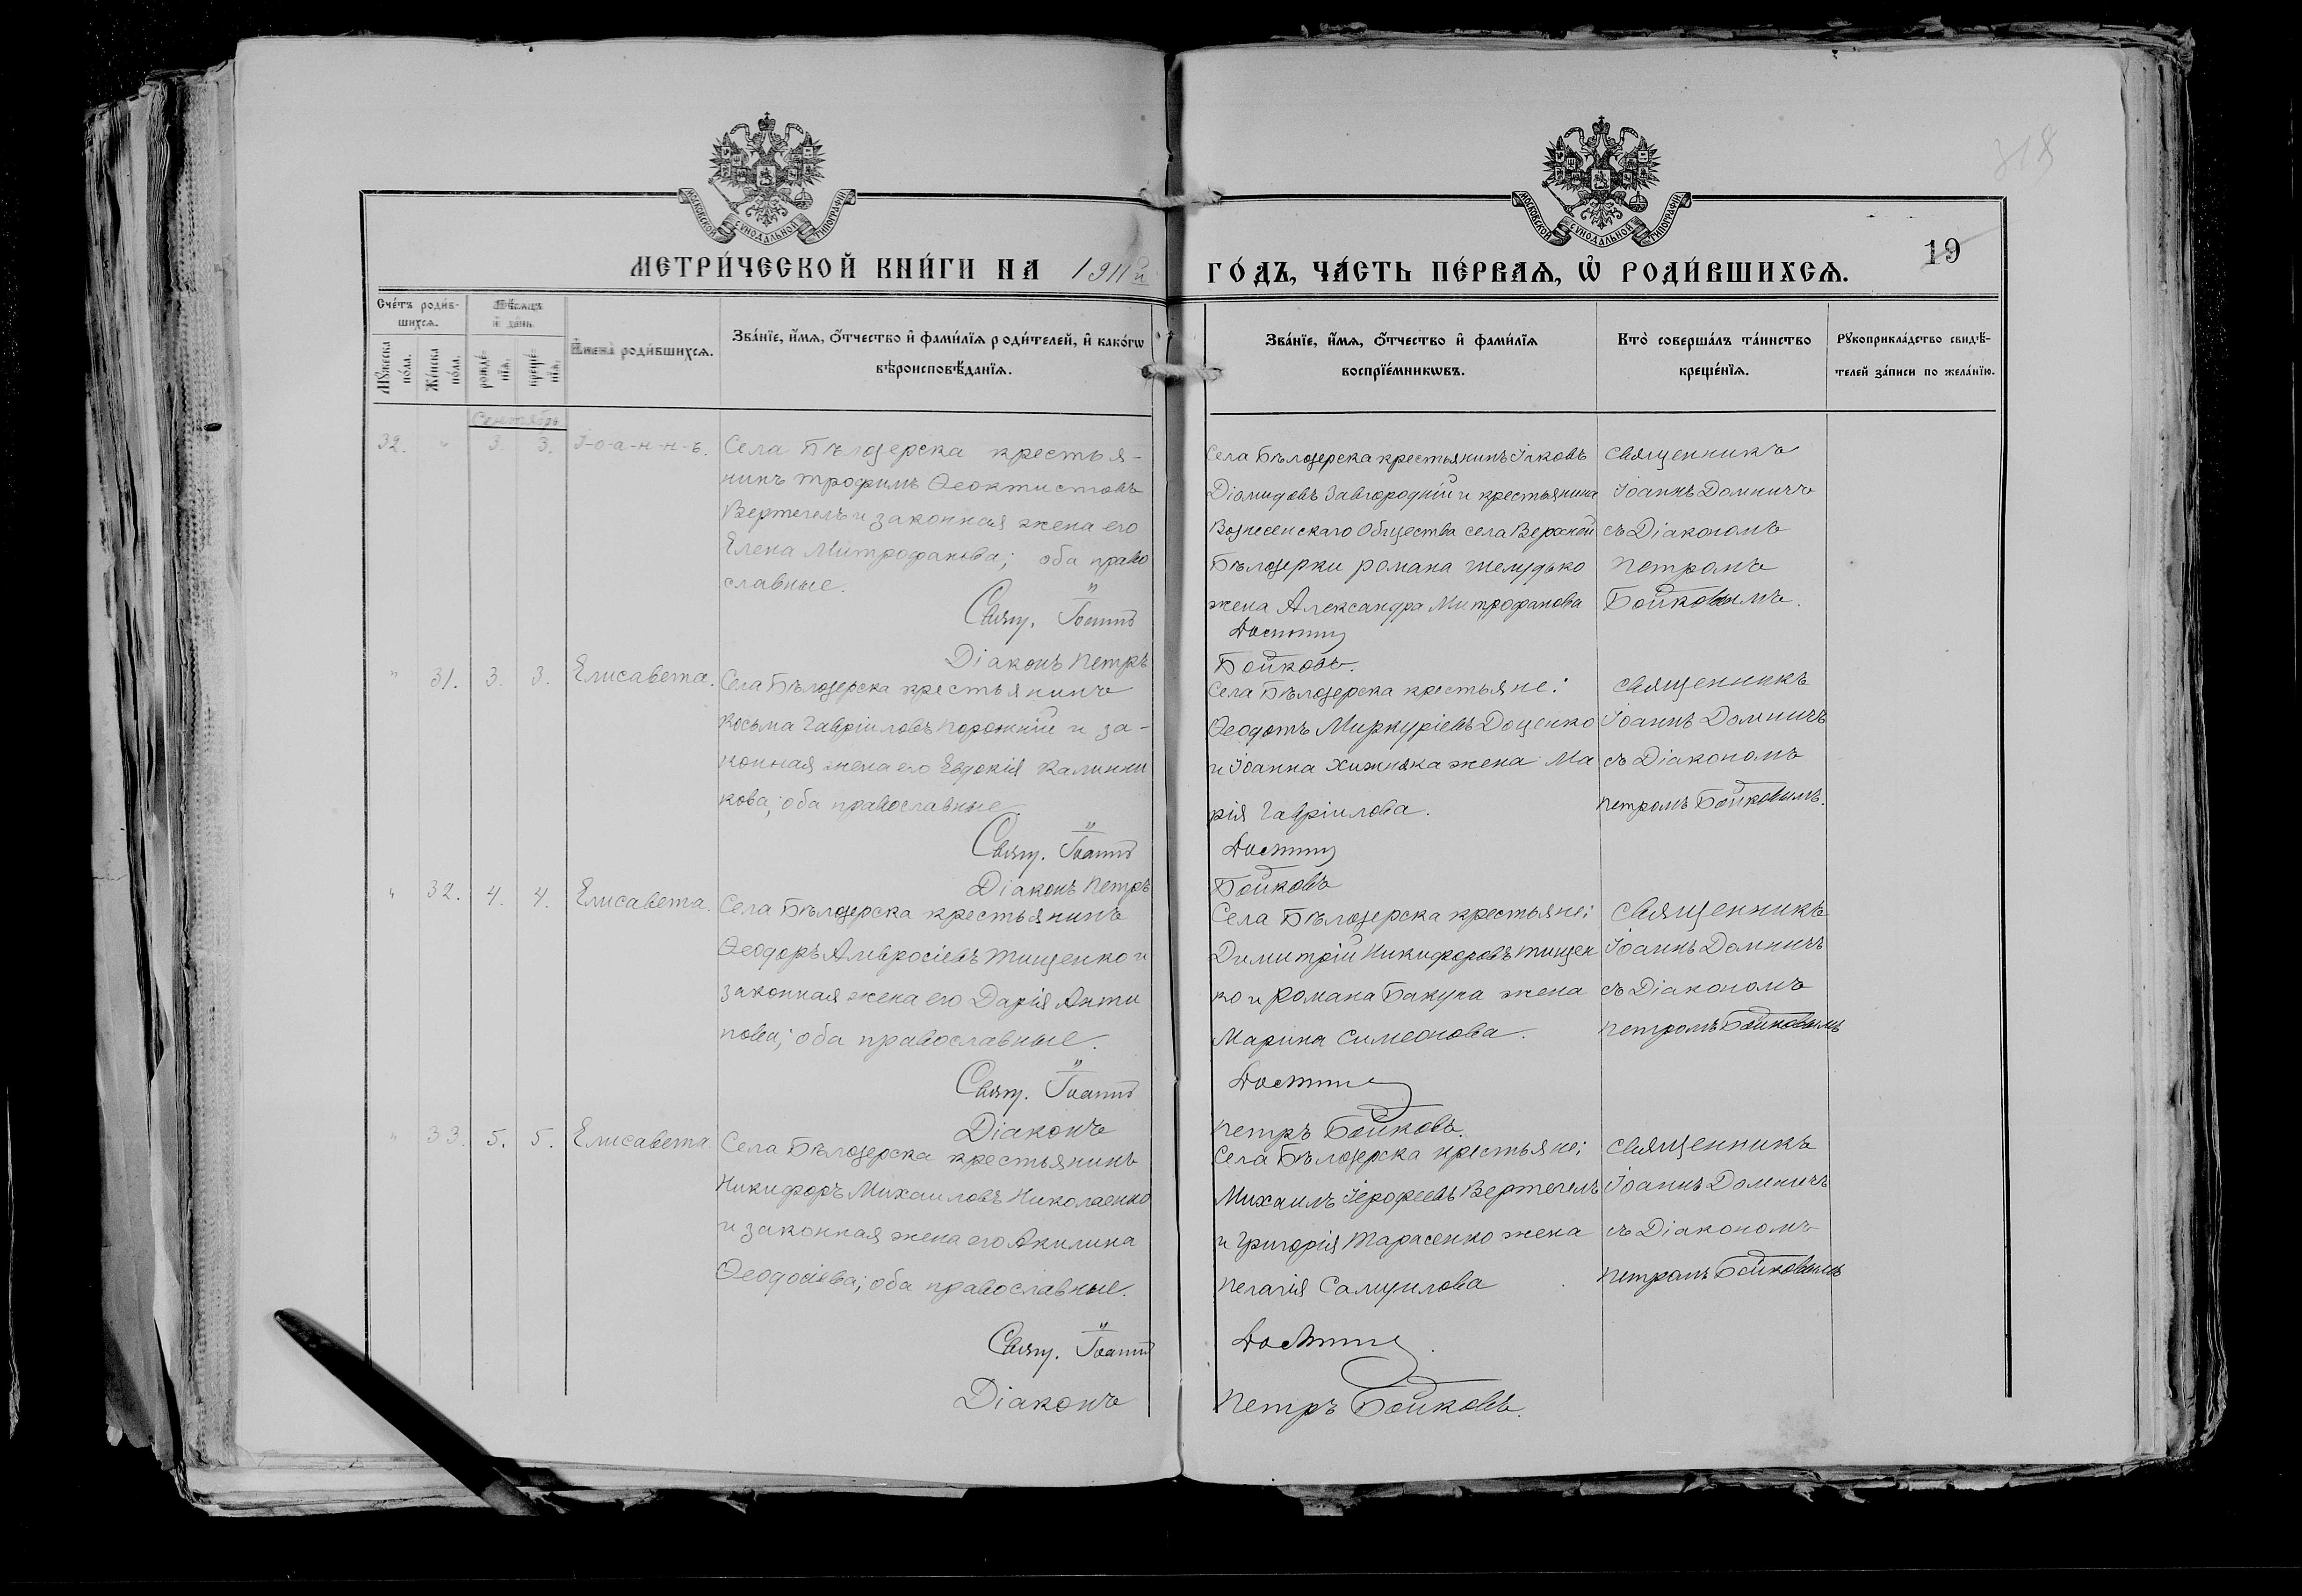 318
МОСКОВСКОЙ СѴНОДАЛЬНОЙ ТИПОГРАФІИ
МОСКОВСКОЙ СѴНОДАЛЬНОЙ ТИПОГРАФІИ
19
МЕТРИ́ЧЕСКОЙ КНИ́ГИ НА 1911й
ГО́ДЪ, ЧА́СТЬ ПЕ́РВАѦ, Ѡ РОДИ́ВШИХСѦ.
Сче́тъ роди́в-
шихсѧ.
Мꙋ́жеска по́ла.
Же́нска по́ла.
Мѣ́сѧцъ
и҆ де́нь
рожде́-
нїѧ.
креще́-
нїѧ.
И҆мена̀ роди́вшихсѧ.
Зва́нїе, и҆́мѧ, ѻ҆́тчество и҆ фами́лїѧ роди́телей, и҆ како́гѡ
вѣроисповѣ́данїѧ.
Зва́нїе, и҆́мѧ, ѻ҆́тчество и҆ фами́лїѧ
воспрїе́мникѡвъ.
Кто̀ соверша́лъ та́инство
креще́нїѧ.
Рꙋкоприкла́дство свидѣ́-
телей за́писи по жела́нїю.
Сентябрь
32. " 3 3. І-о-а-н-н-ъ.
Села Бѣлозерска крестья-
нинъ Трофимъ Ѳеоктистовъ
Вертегелъ и законная жена его
Елена Митрофанова; оба право
славные.
Свящ. Іоаннъ
Діаконъ Петръ
Села Бѣлозерска крестьянинъ Іаковъ
Діомидовъ Завгородній и крестьянина
Вознесенскаго Общества села Верхней
Бѣлозерки Романа Шемудько
жена Александра Митрофанова
Домнич
Бойковъ.
Священникъ
Іоаннъ Домничъ
съ Діакономъ
Петромъ
Бойковымъ.
" 31. 3. 3. Елисавета.
Села Бѣлозерска крестьянинъ
Косьма Гавріиловъ Порожній и за-
конная жена его Евдокія Калинни
кова; оба православные
Свящ. Іоаннъ
Діаконъ Петръ
Села Бѣлозерска крестьяне:
Ѳеодотъ Меркуріевъ Доценко
и Іоанна Хижняка жена Ма
рія Гавріилова.
Домнич
Бойковъ
Священникъ
Іоаннъ Домничъ
съ Діакономъ
Петромъ Бойковымъ.
" 32. 4. 4. Елисавета.
Села Бѣлозерска крестьянинъ
Ѳеодоръ Амвросіевъ Тищенко и
законная жена его Дарія Анти
пова; оба православные.
Свящ. Іоаннъ
Діаконъ
Села Бѣлозерска крестьяне:
Димитрій Никифоровъ Тищен
ко и Романа Бакуна жена
Марина Симеонова.
Домнич
Петръ Бойковъ.
Священникъ
Іоаннъ Домничъ
съ Діакономъ
Петромъ Бойковымъ
" 33. 5. 5. Елисавета
Села Бѣлозерска крестьянинъ
Никифоръ Михаиловъ Николаенко
и законная жена его Акилина
Ѳеодосіева; оба православные.
Свящ. Іоаннъ
Діаконъ
Села Бѣлозерска крестьяне:
Михаилъ Іерофеевъ Вертегелъ
и Григорія Тарасенко жена
Пелагія Самуилова
Домнич
Петръ Бойковъ.
Священникъ
Іоаннъ Домничъ
съ Діакономъ
Петромъ Бойковымъ